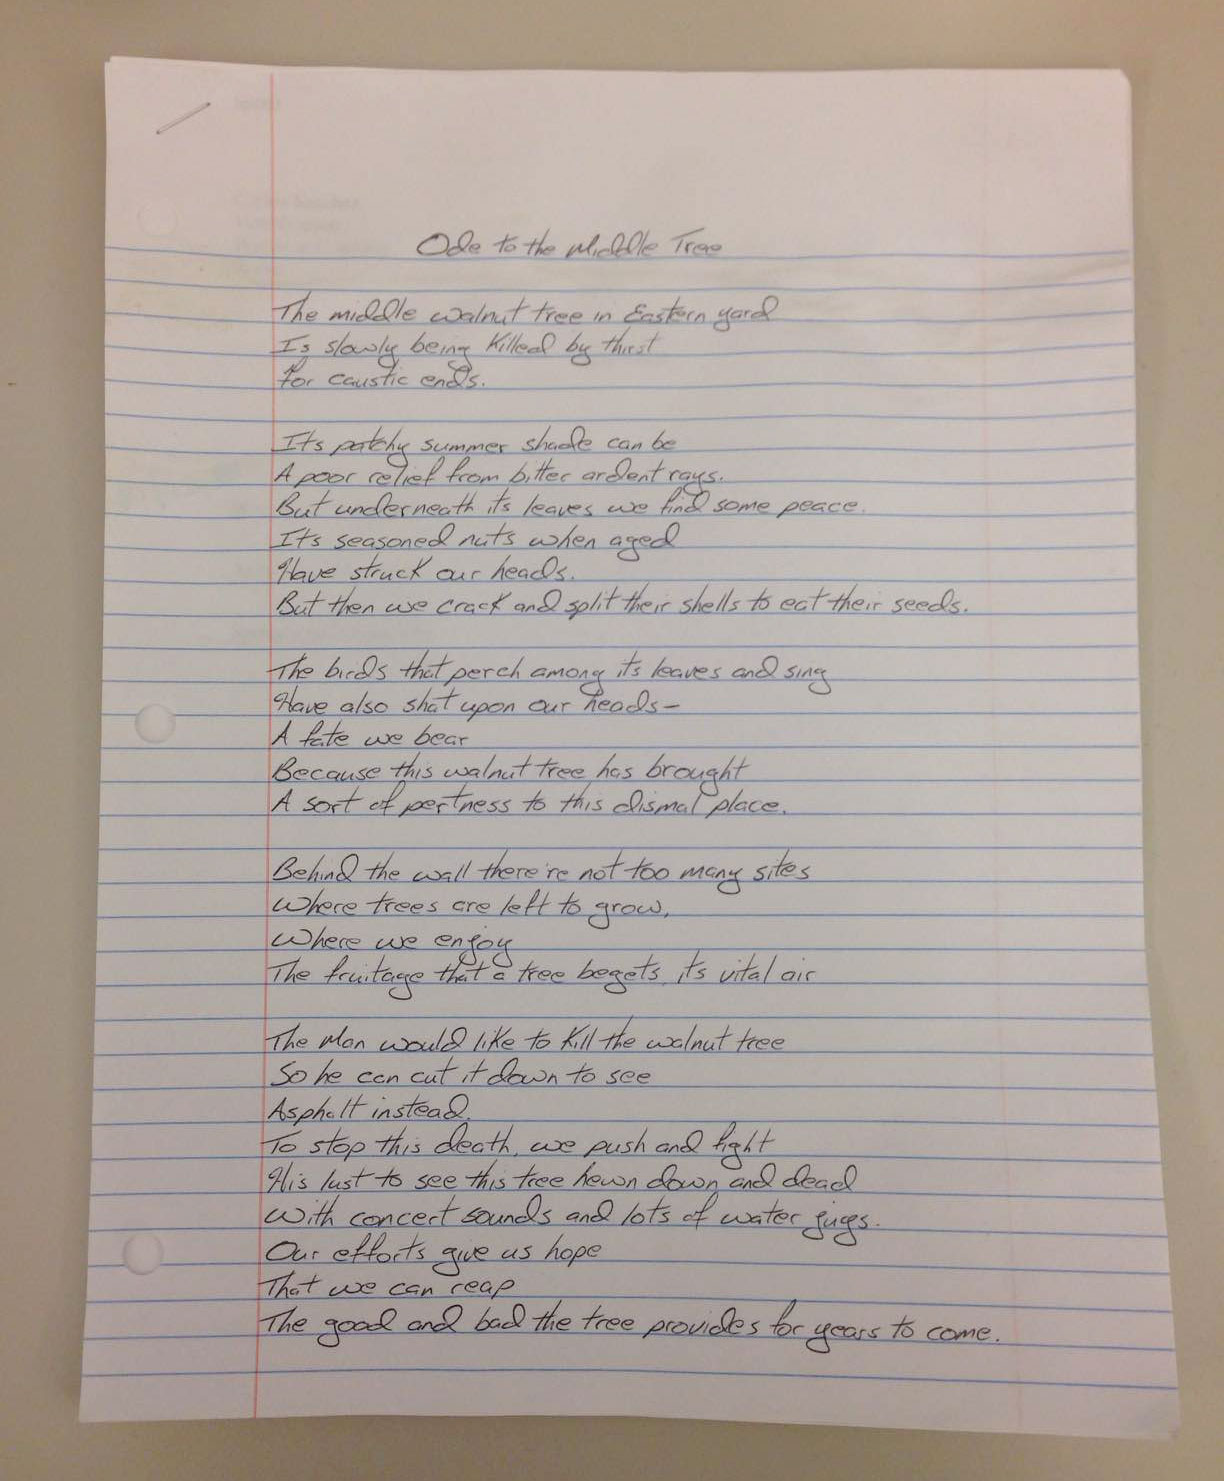 Ode to the Middle Tree
The middle walnut tree in Eastern yard
Is slowly being killed by thirst
for caustic ends.
Its patchy summer shade can be
A poor relief from bitter ardent rays.
But underneath its leaves we find some peace.
Its seasoned nuts when aged
Have struck our heads.
But then we crack and split their shells to eat their seeds.
The birds that perch among its leaves and sing
Have also shat upon our heads—
A fate we bear
Because this walnut tree has brought
A sort of pertness to this dismal place.
Behind the wall there're not too many sites
Where trees are left to grow,
Where we enjoy
The fruitage that a tree begets, its vital air
The Man would like to kill the walnut tree
So he can cut it down to see
Asphalt instead.
To stop this death, we push and fight
His lust to see this tree hewn down and dead
With concert sounds and lots of water jugs.
Our efforts give us hope
That we can reap
The good and bad the tree provides for years to come.